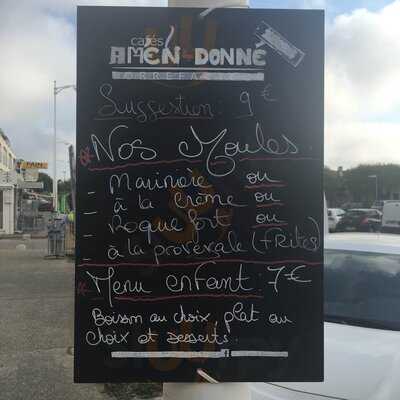 cafés
AMEN DONNÉ
TORREFACTEUR
Suggestion: 9 €
* Nos Moules.
- Marinière ou
- à la Crème ou
- Roquefort ou
- à la provençale (+ FRites)
* Menu enfant : 7€
Boisson au choix, plat au
choix et desserts.